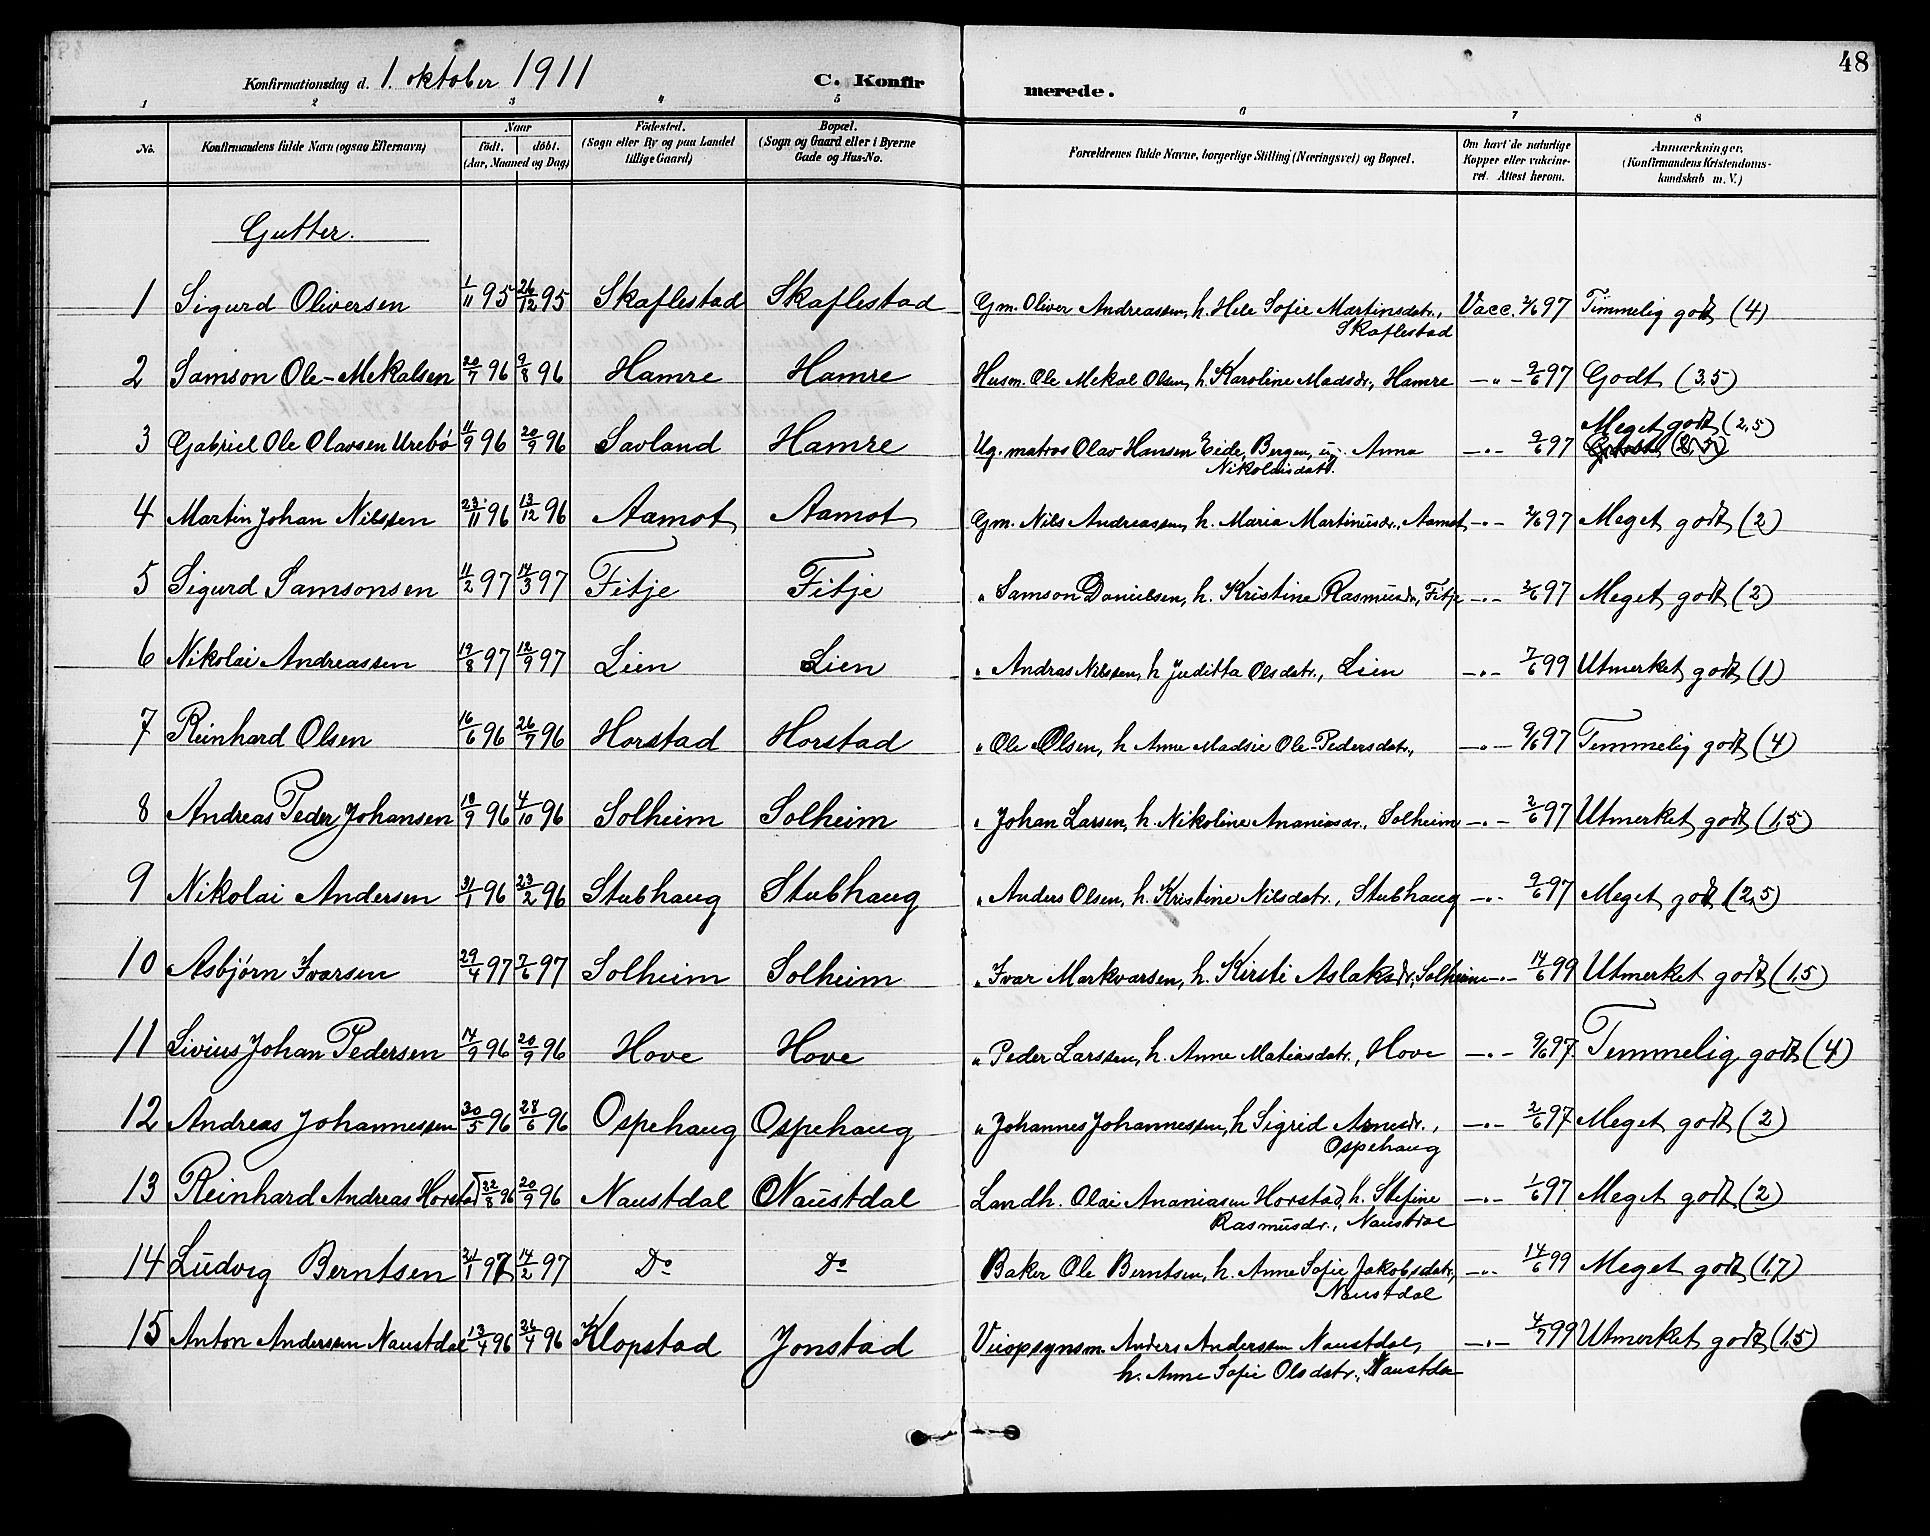 48
Konfirmationsdag d. 1. oktober 1911 C. Konfirmerede.
1 2 3 4 5 6 7 8
No. Konfirmandens fulde Navn (ogsaa Efternavn) Naar födt. döbt. (Aar, Maaned og Dag) Födested. (Sogn eller By og paa Landet tillige Gaard) Bopæl. (Sogn og Gaard eller i Byerne Gade og Hus-No. Forældrenes fulde Navne, borgerlige Stilling (Næringsvei) og Bopæl. Om havt de naturlige Kopper eller vakcineret. Attest herom. Anmærkninger. (Konfirmandens Kristendomskundskab m. V.)
Gutter.
1 Sigurd Oliversen 1/11 95 26/12 95 Skaflestad Skaflestad Gm. Oliver Andreassen, h. Hele Sofie Martinsdatr., Skaflestad Vacc. 2/6 97 Temmelig godt (4)
2 Samson Ole-Mekalsen 20/7 96 9/8 96 Hamre Hamre Husm. Ole Mekal Olsen, h. Karoline Madsdr., Hamre —"— 2/6 97 Godt (3,5)
3 Gabriel Ole Olavsen Urebø 11/9 96 20/9 96 Savland Hamre Ug. matros Olav Hansen Eide, Bergen, ug. Anna Nikolaisdatr. —"— 2/6 97 Meget godt (2,5)
4 Martin Johan Nilssen 23/11 96 13/12 96 Aamot Aamot Gm. Nils Andreassen, h. Maria Martinusdr., Aamot —"— 2/6 97 Meget godt (2)
5 Sigurd Samsonsen 11/2 97 14/3 97 Fitje Fitje " Samson Danielsen, h. Kristine Rasmusdr, Fitje —"— 2/6 97 Meget godt (2)
6 Nikolai Andreassen 19/8 97 12/9 97 Lien Lien " Andras Nilssen, h Juditta Olsdatr., Lien —"— 7/6 99 Utmerket godt (1)
7 Reinhard Olsen 16/6 96 26/7 96 Horstad Horstad " Ole Olsen, h Anne Madsie Ole-Pedersdatr., —"— 9/6 97 Temmelig godt (4)
8 Andreas Peder Johansen 10/9 96 4/10 96 Solheim Solheim " Johan Larsen, h. Nikoline Ananiasdr., Solheim —"— 2/6 97 Utmerket godt (1,5)
9 Nikolai Andersen 31/1 96 23/2 96 Stubhaug Stubhaug " Anders Olsen, h. Kristine Nilsdatr., Stubhaug —"— 2/6 97 Meget godt (2,5)
10 Asbjørn Ivarsen 29/4 97 7/6 97 Solheim Solheim " Ivar Markvarsen, h. Kirsti Aslaksdr, Solheim —"— 14/6 99 Utmerket godt (1,5)
11 Livius Johan Pedersen 14/9 96 20/9 96 Hove Hove " Peder Larssen, h. Anne Matiasdatr., Hove —"— 9/6 97. Temmelig godt (4)
12 Andreas Johannessen 30/5 96 28/6 96 Ospehaug Ospehaug " Johannes Johannessen, h Sigrid Arnesdr., Ospehaug —"— 2/6 97 Meget godt (2)
13 Reinhard Andreas Horstad 22/8 96 20/9 96 Naustdal Naustdal Landh. Olai Ananiasen Horstad, h. Stefine Rasmusdr., Naustdal —"— 1/6 97 Meget godt (2)
14 Ludvig Berntsen 21/1 97 14/2 97 Do Do Baker Ole Berntsen, h. Anne Sofie Jakobsdatr, Naustdal —"— 14/6 99 Meget godt (1,7)
15 Anton Anderssen Naustdal 13/4 96 26/4 96 Klopstad Jonstad Viopsynsm. Anders Anderssen Naustdal, h. Anne Sofie Olsdatr., Naustdal —"— 4/7 99 Utmerket godt (1,5)